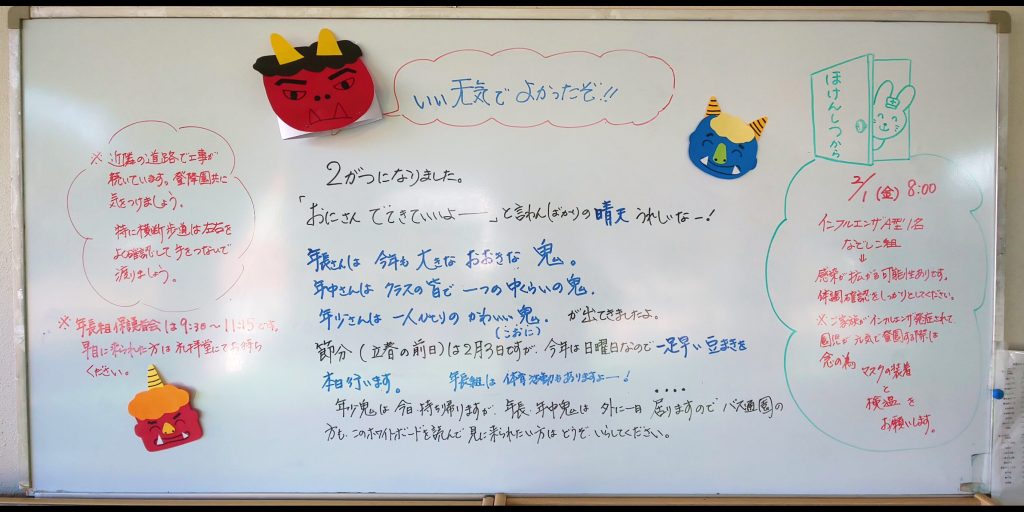 いい天気でよかったぞ!!
※ 近隣の道路で工事が
続いています。登降園共に
気をつけましょう。
特に横断歩道は左右を
よく確認して手をつないで
渡りましょう。
※ 年長組保護者会は9:30〜11:15です。
早目に来られた方は礼拝堂にてお待ち
ください。
2がつになりました。
「おにさん でてきていいよーー」と言わんばかりの晴天 うれしいなー!
年長さんは 今年も 大きな おおきな 鬼。
年中さんは クラスの皆で 一つの中くらいの鬼。
年少さんは 一人ひとりの かわいい 鬼。 が出てきましたよ。
(こおに)
節分(立春の前日)は2月3日ですが、今年は日曜日なので一足早い豆まきを
本日行います。 年長組は 体育活動もありますよー!
年少鬼は今日持ち帰りますが、年長・年中鬼は 外に一日 居りますので バス通園の
方も、このホワイトボードを読んで見に来られたい方は どうぞ、いらしてください。
ほけんしつから
2/1(金) 8:00
インフルエンザA型1名
なでしこ組
↓
感染が拡がる可能性ありです。
体調確認をしっかりとしてください。
※ご家族がインフルエンザ発症されて、
園児が元気で登園する際は
念の為
マスクの装着
と
検温 を
お願いします。